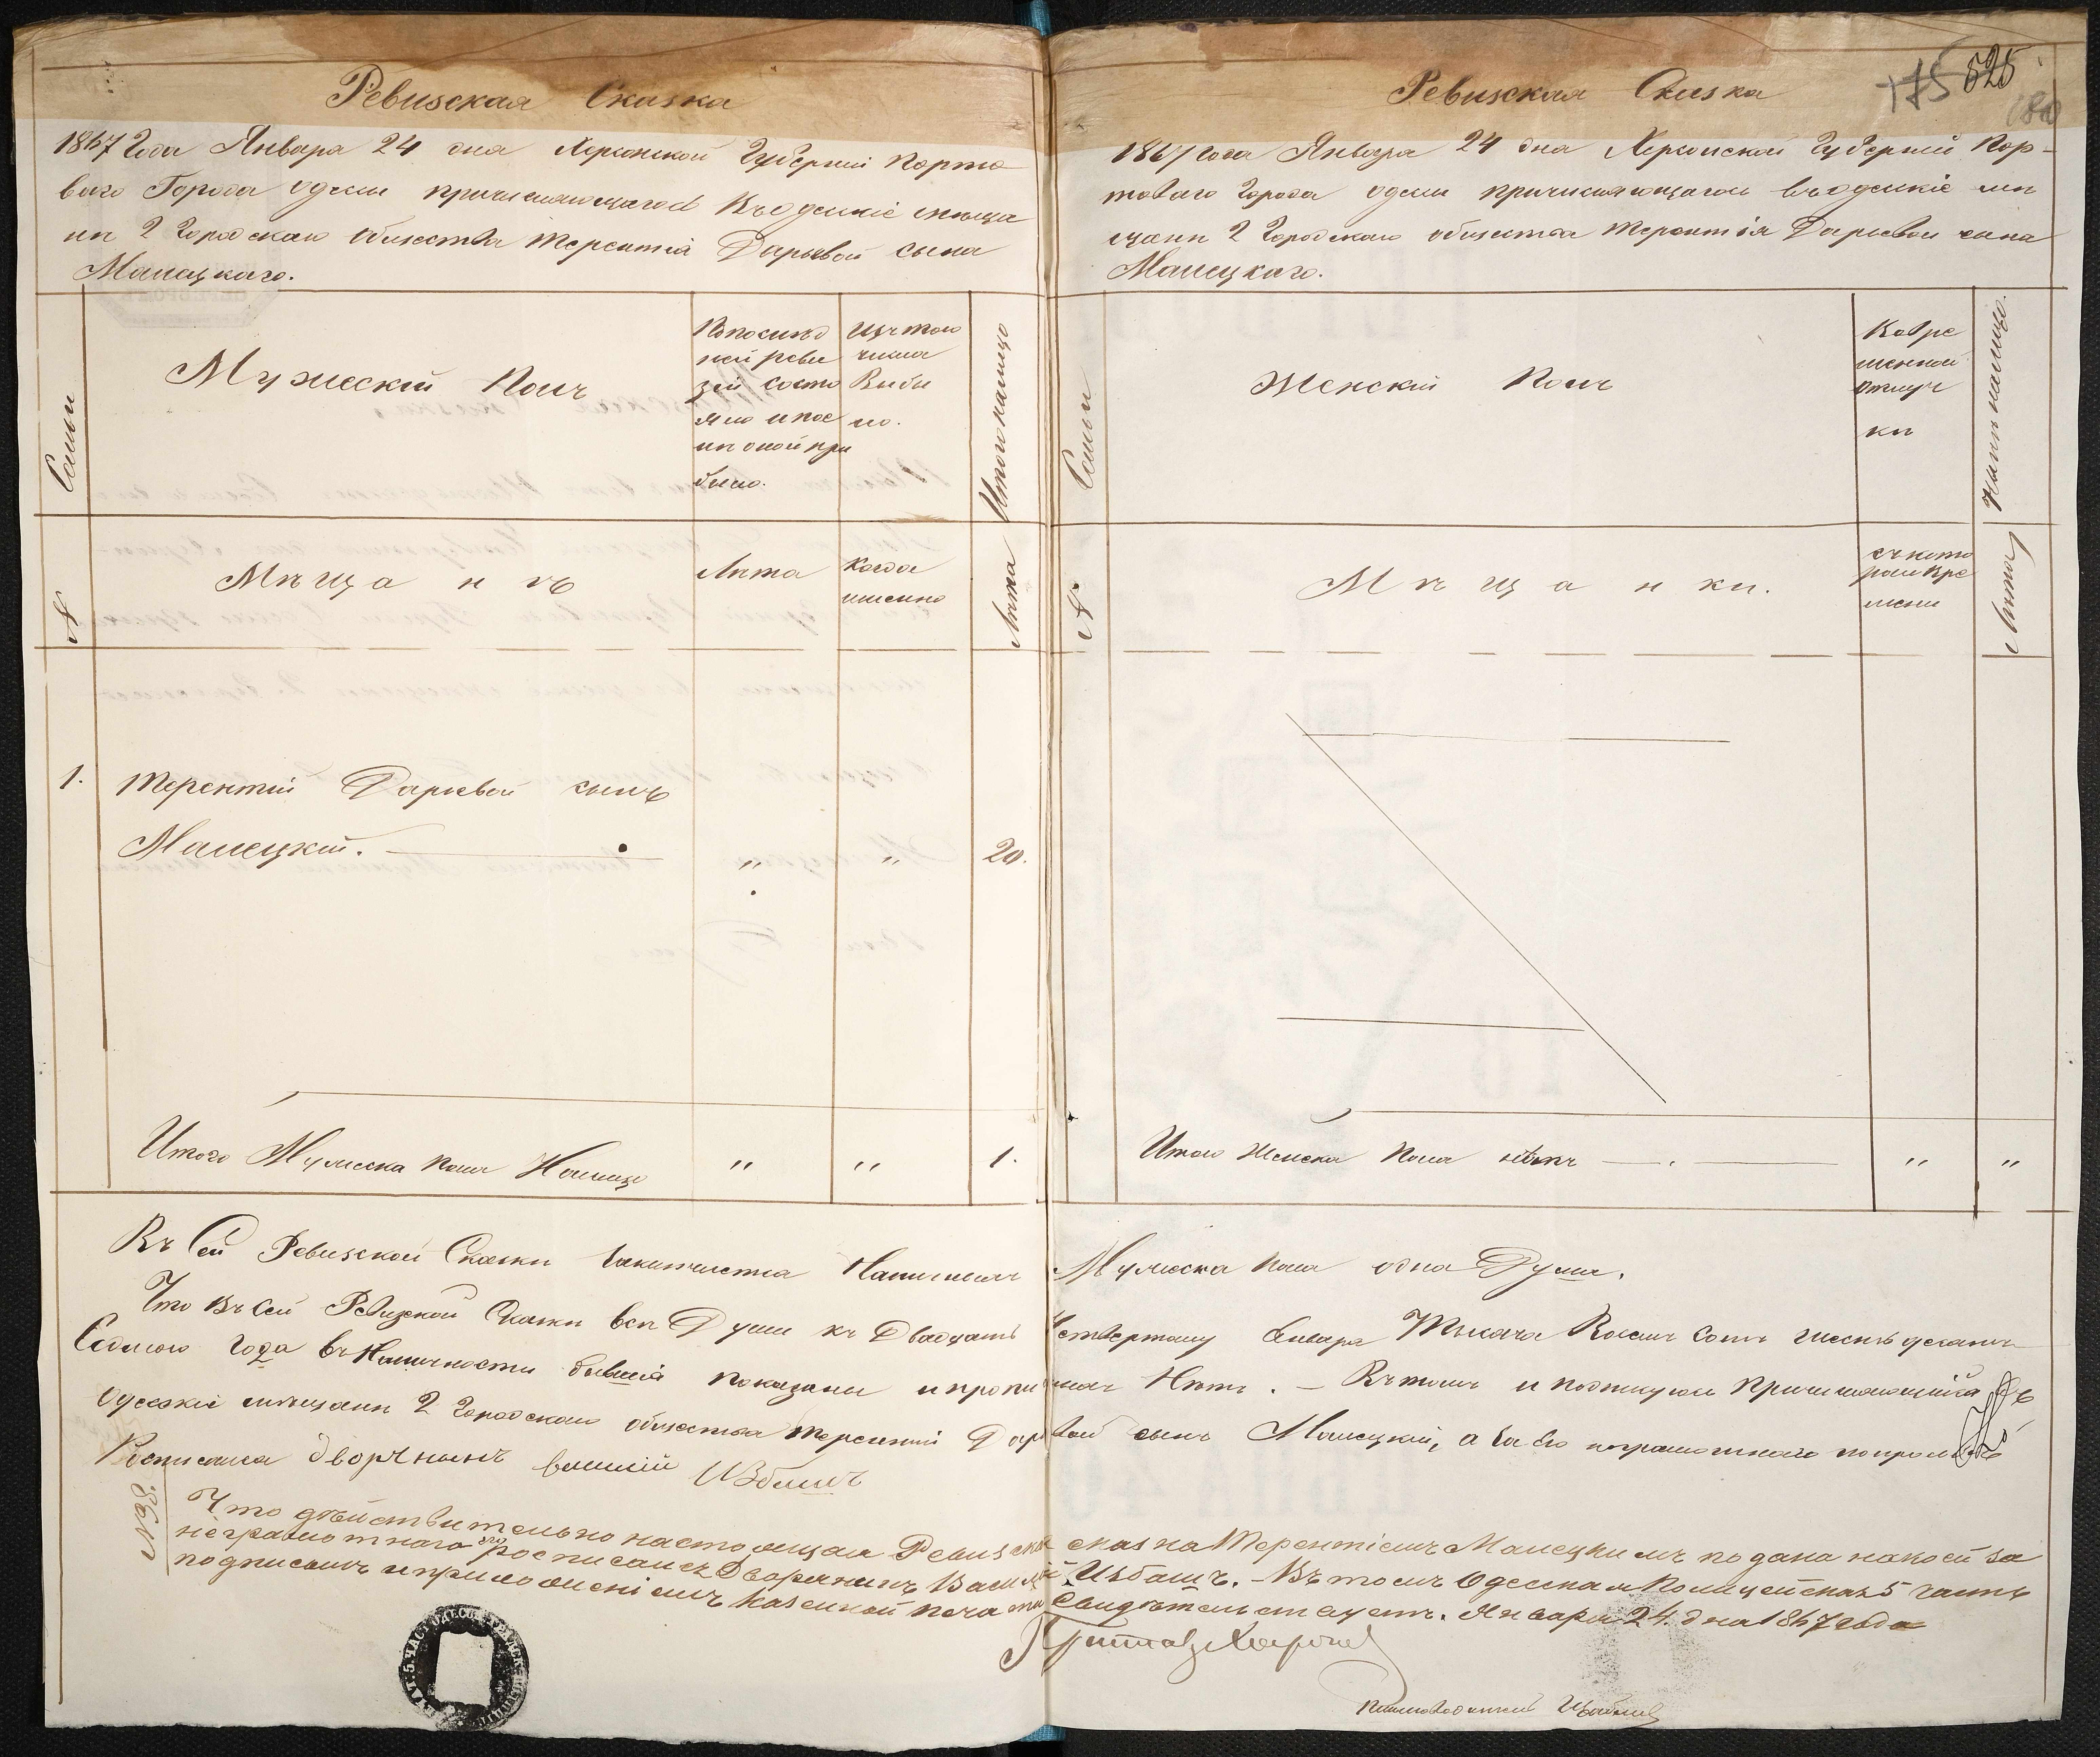 Ревизская Сказка
1867 Года Января 24 дня Херсонской Губерніи Порто
ваго Города Одессы причисляющагося въ одескіе мѣща
нѣ 2 Городскаго общества Терентія Дарьевой сына
Малецкаго.
Семьи
Мужескій Полъ
По послѣд
ней реви
зіи состо
яло и пос
лѣ оной при
было.
Изъ того
числа
Выбы
ло.
Итого на лицо
№
Мѣщанъ
Лѣта
Когда
именно
Лѣта
1. Терентій Дарьевой сынъ
Малецкій. " " 20.
Итого Мужеска пола На лицо " " 1.
Ревизская Сказка
175 525
180
1867 года Января 24 дна Херсонской Губерніи Пор-
товаго Города Одессы причисляющагося въ одескіе мѣ
щанѣ 2 Городскаго общества Терентія Дарьевой сына
Малецкаго.
Семьи
Женскій Полъ
Во вре
менной
отлуч
кѣ
Нынѣ на лицо.
№
Мѣщанки.
съ кото
раго вре
мени
Лѣта
Итого Женска Пола нѣтъ " "
Въ Сей Ревизской Сказки Мужеска пола одна Душа.
Что въ сей Ревизской Сказки всѣ Души къ Двадцать Четвертому Января Тысяча Восемь Сотъ шестьдесятъ
Седмого Года въ Наличности бывшія показаны и прописныхъ Нѣтъ. — Въ томъ и подписуюсь Причисляющійся въ
Одесскіе мѣщанѣ 2 Городскаго общества Терентій Дарьевой сынъ Малецкій, а за его неграмотнаго по прозьбѣ
Росписался Дворянинъ Василій Избашъ
№98.
Что дѣйствительно настоящая Ревизская сказка Терентіемъ Малецкимъ подана на коей за
неграмотнаго его росписался Дворянинъ Василій Избашъ. — Въ томъ Одесская Полицейская 5 часть
подписомъ и приложеніемъ казенной печати Свидѣтельствуетъ. Января 24 дна 1867 года
Приставъ
Письмоводитель